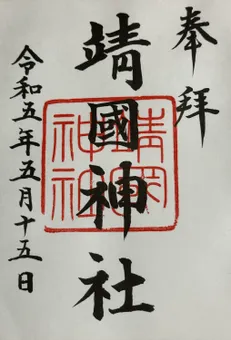 奉拜
靖國神社
靖國神社
令和五年五月十五日